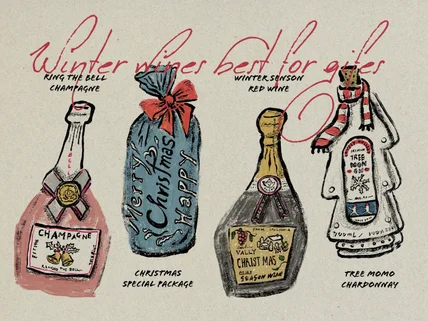 Winter wines best for gifes
RING THE BELL
CHAMPAGNE
WINTER SENSON
RED WINE
Merry
Christmas
Happy
CHAMPAGNE
VALLY
CHRISTMAS
SEASON WINE
TREE
CHRISTMAS
SPECIAL PACKAGE
TREE MOMO
CHARDONNAY